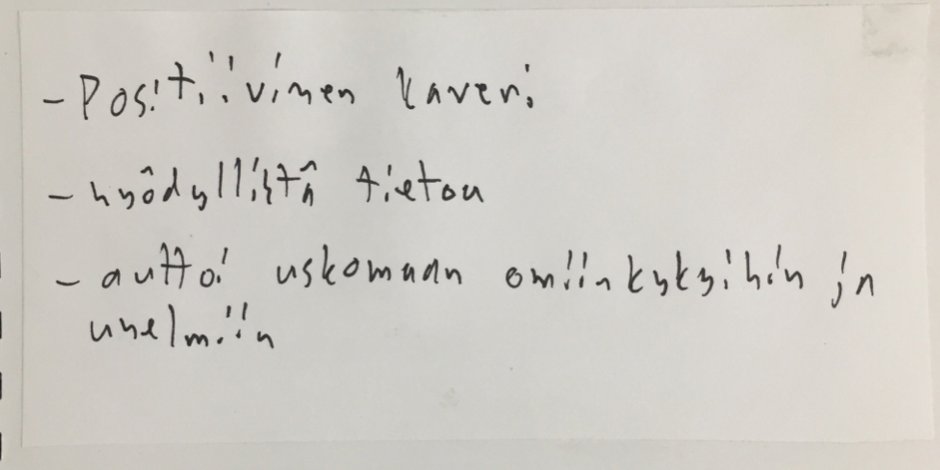 - Positiivinen kaveri
- hyödyllistä tietoa
- auttoi uskomaan omiin kykyihin ja
unelmiin